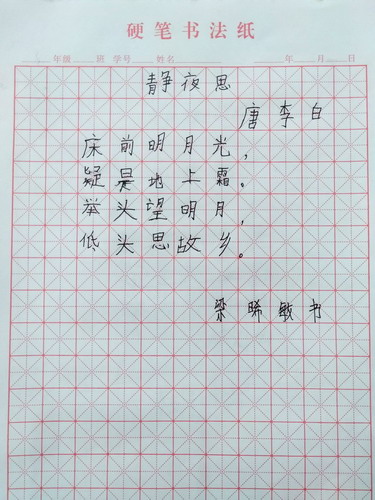 硬笔书法纸
年级 班 学号 姓名 年 月 日
静夜思
唐 李白
床前明月光，
疑是地上霜。
举头望明月，
低头思故乡。
梁晞敏书